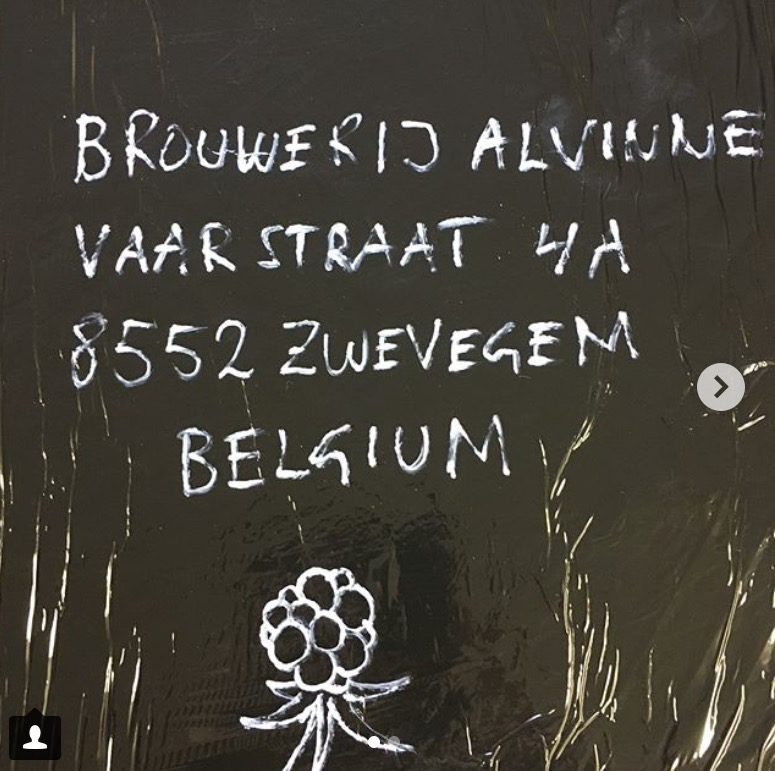 BROUWERIJ ALVINNE
VAARSTRAAT 4A
8552 ZWEVEGEM
BELGIUM